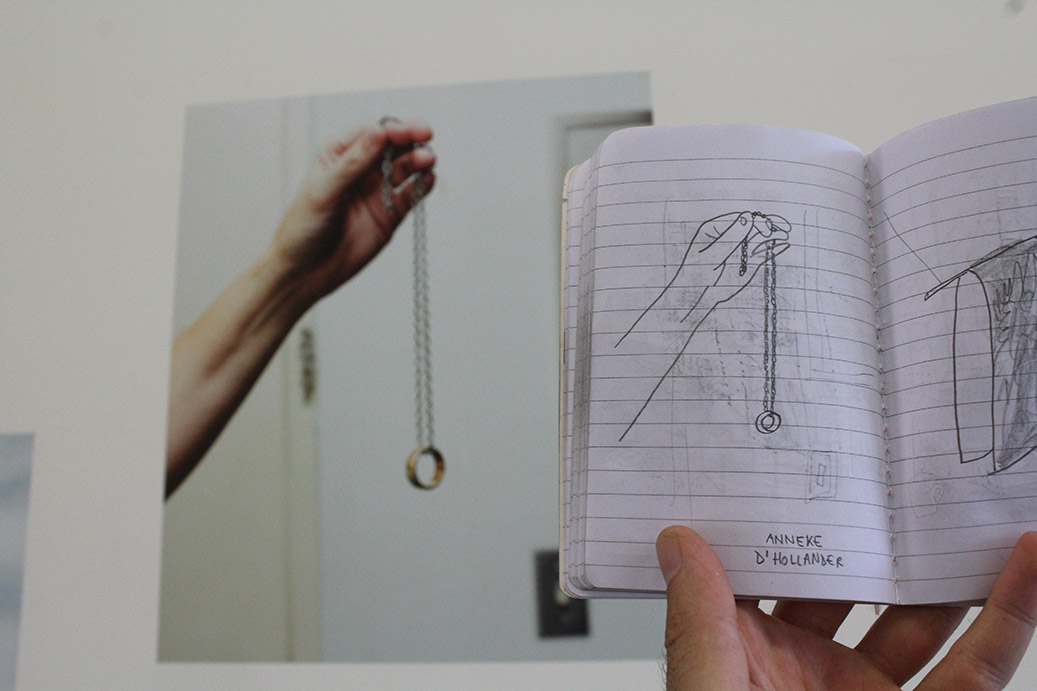 ANNEKE
D'HOLLANDER